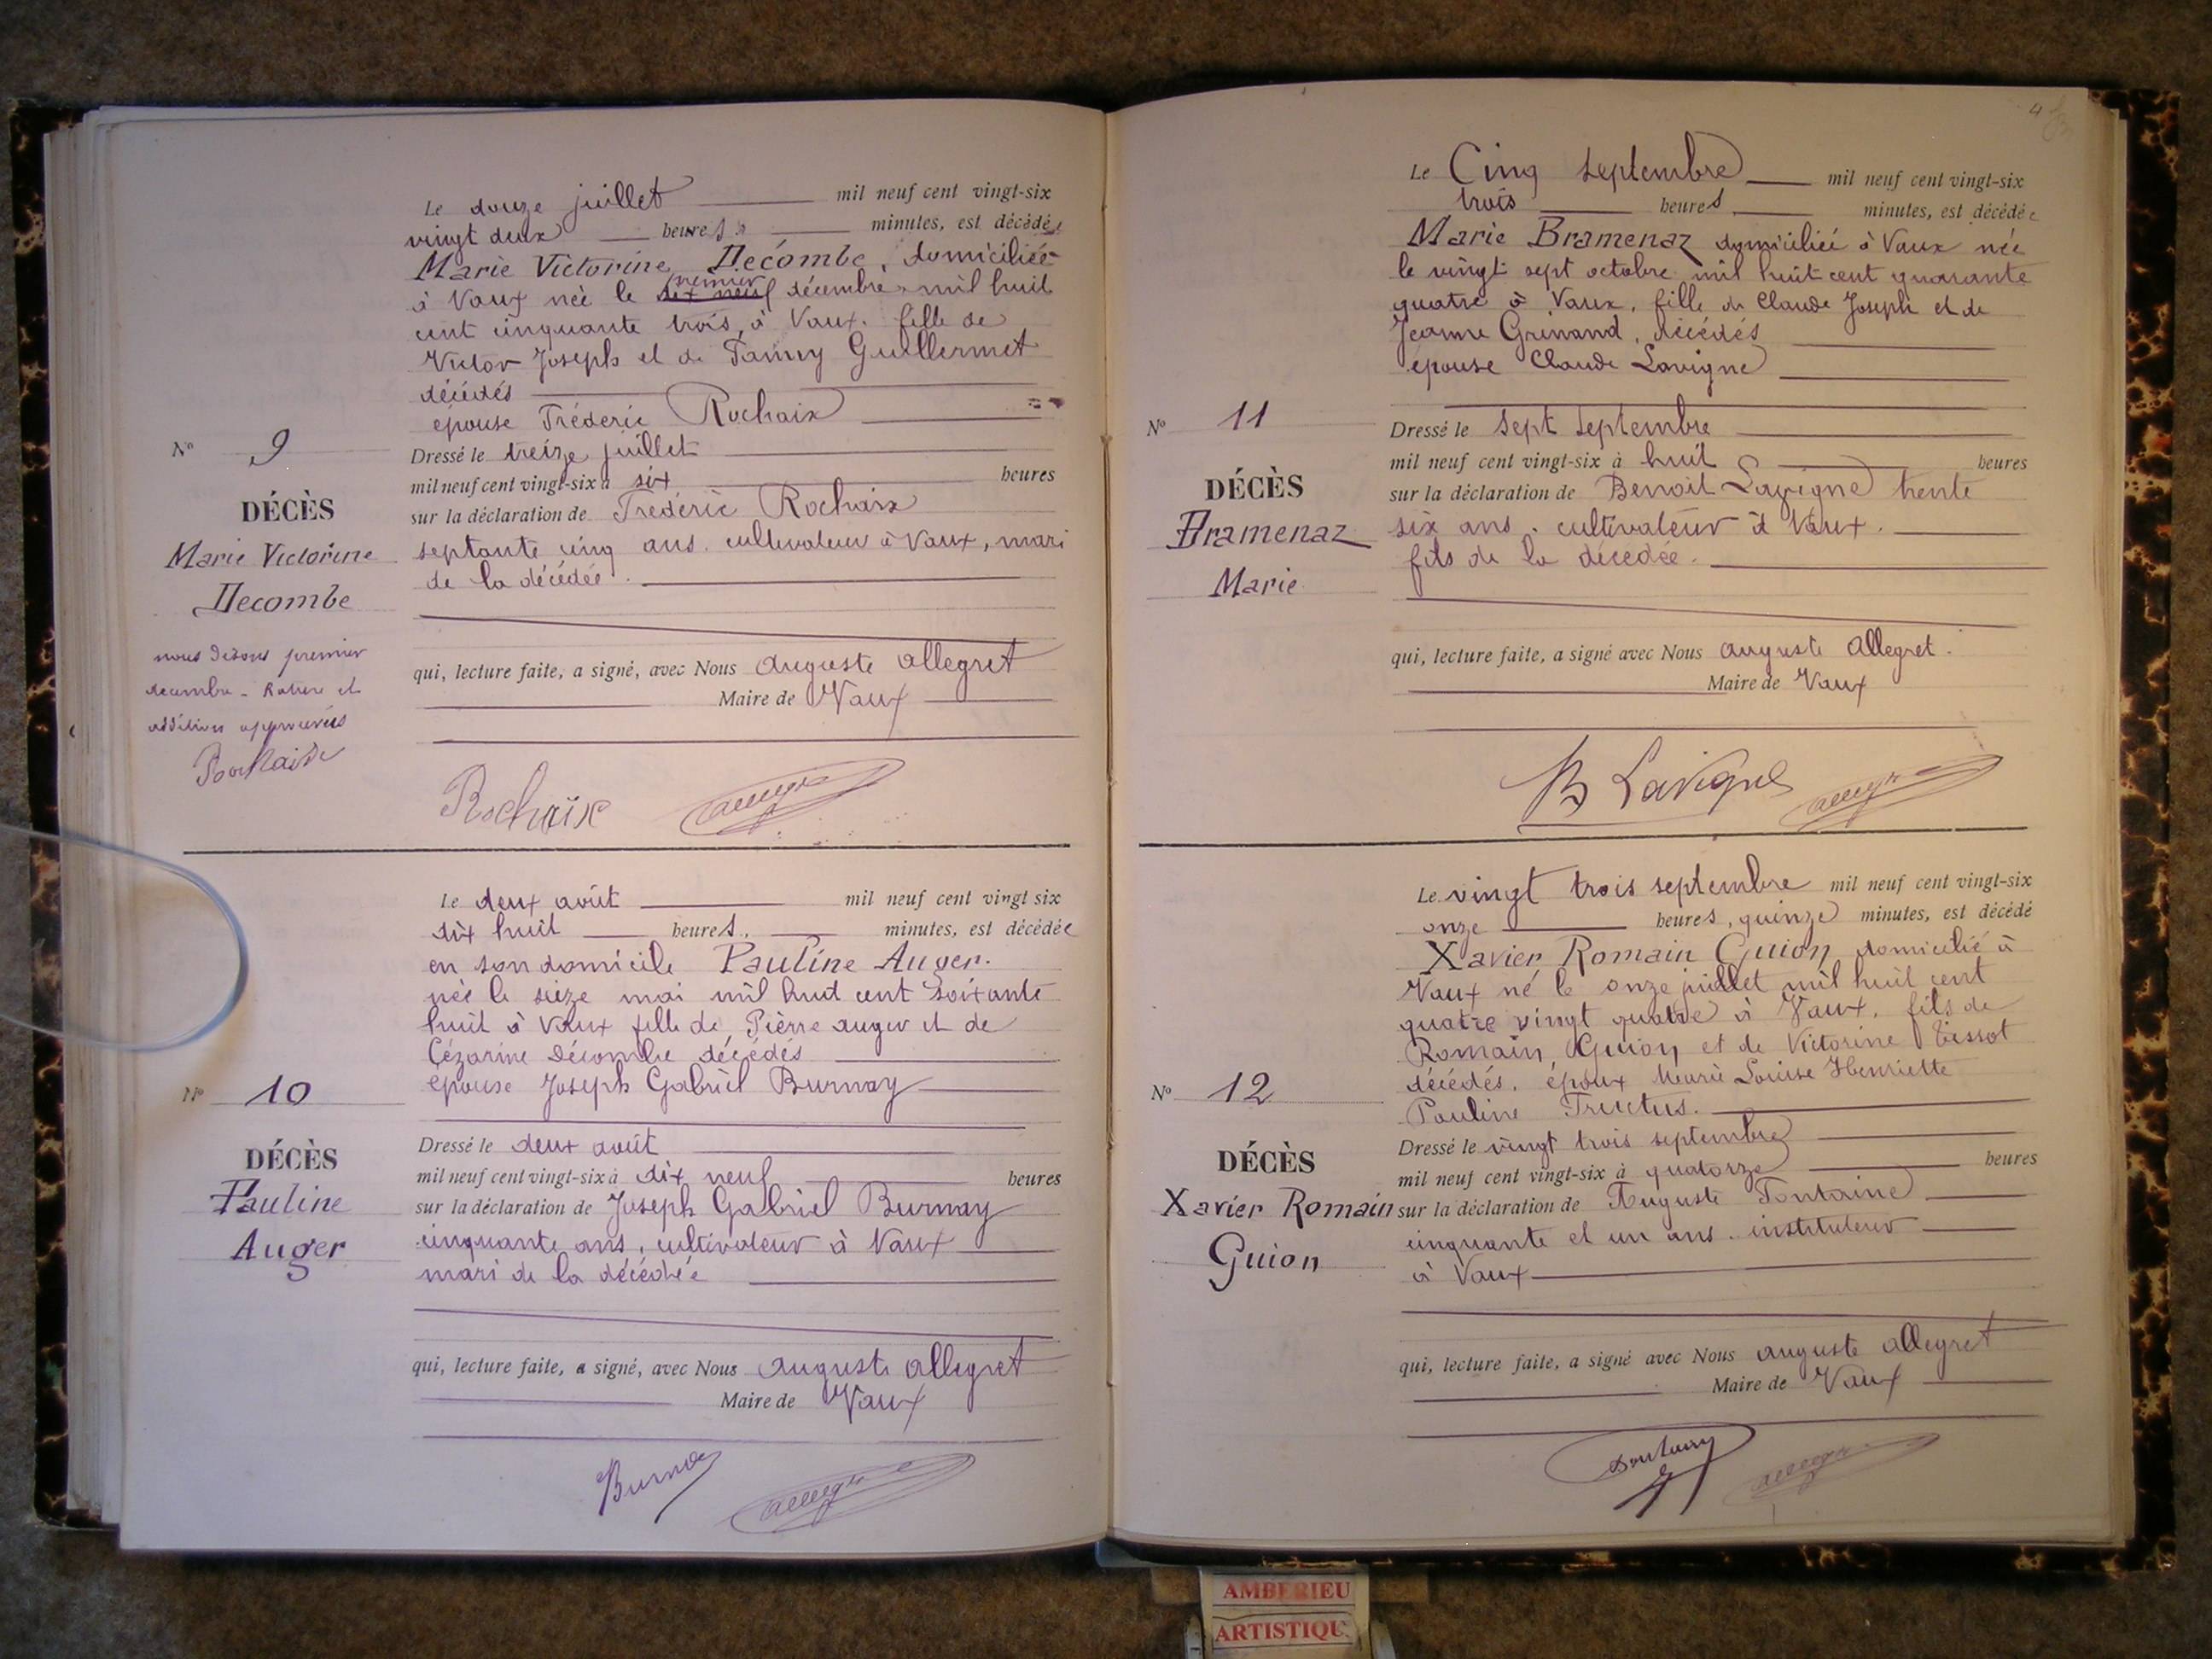 Le douze juillet mil neuf cent vingt-six
vingt deux heures minutes, est décédée
Marie Victorine Décombe, domiciliée
premier
à Vaux née le dix neuf décembre mil huit
cent cinquante trois à Vaux. fille de
Victor Joseph et de Fanny Guillermet
décédés
épouse Fréderic Rochaix
Nº 9
Dressé le treize juillet
mil neuf cent vingt-six à six heures
DÉCÈS
sur la déclaration de Fréderic Rochaix
Marie Victorine
septante cinq ans. cultivateur à Vaux, mari
Decombe
de la décédée.
nous disons premier
décembre - Rature et
addition approuvées
Rochaix
qui, lecture faite, a signé, avec Nous Auguste Allegret
Maire de Vaux
Rochaix
Allegret
Le deux août mil neuf cent vingt six
dix huit heures, minutes, est décédée
en son domicile Pauline Auger.
née le seize mai mil huit cent soixante
huit à Vaux fille de Pierre Auger et de
Cézarine Décombe décédés
épouse Joseph Gabriel Burnay
Nº 10
Dressé le deux août
DÉCÈS
mil neuf cent vingt-six à dix neuf heures
Pauline
sur la déclaration de Joseph Gabriel Burnay
Auger
cinquante ans, cultivateur à Vaux
mari de la décédée
qui, lecture faite, a signé, avec Nous Auguste Allegret
Maire de Vaux
Burnay
Allegret
4
Le Cinq septembre mil neuf cent vingt-six
trois heures minutes, est décédée
Marie Bramenaz domiciliée à Vaux née
le vingt sept octobre mil huit cent quarante
quatre à Vaux, fille de Claude Joseph et de
Jeanne Grinand, décédés
épouse Claude Lavigne
Nº 11
Dressé le sept septembre
mil neuf cent vingt-six à huit heures
DÉCÈS
sur la déclaration de Benoit Lavigne trente
Bramenaz
six ans. cultivateur à Vaux.
Marie
fils de la décédée.
qui, lecture faite, a signé avec Nous Auguste Allegret.
Maire de Vaux
B Lavigne
Allegret
Le vingt trois septembre mil neuf cent vingt-six
onze heures, quinze minutes, est décédé
Xavier Romain Guion domicilié à
Vaux né le onze juillet mil huit cent
quatre vingt quatre à Vaux, fils de
Romain Guion et de Victorine Tissot
décédés, époux Marie Louise Henriette
Pauline Fructus.
Nº 12
Dressé le vingt trois septembre
DÉCÈS
mil neuf cent vingt-six à quatorze heures
Xavier Romain
sur la déclaration de Auguste Fontaine
Guion
cinquante et un ans. instituteur
à Vaux
qui, lecture faite, a signé avec Nous Auguste Allegret
Maire de Vaux
Fontaine
Allegret
AMBERIEU
ARTISTIQU